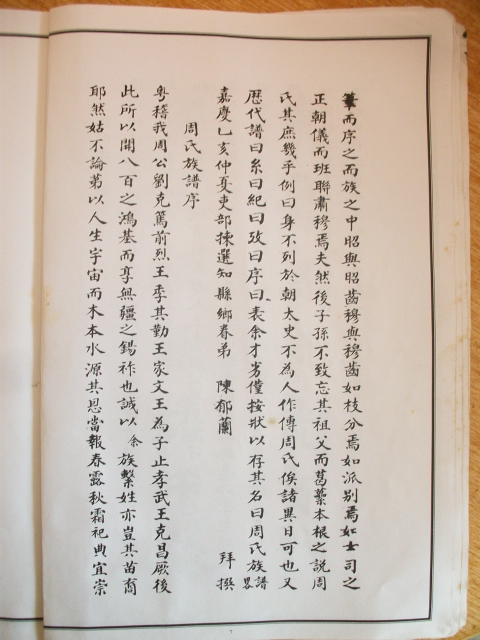 筆而序之而族之中昭與昭齒穆與穆齒如枝分焉如派别焉如士司之
正朝儀而班聯肅穆焉夫然後子孫不致忘其祖父而葛藟本根之説周
氏其庶幾乎例曰身不列於朝太史不為人作傳周氏俟諸異日可也又
歴代譜曰系曰紀曰攷曰序曰表余才劣僅按狀以存其名曰周氏族譜畧
嘉慶乙亥仲夏吏部揀選知縣鄉眷弟 陳郁蘭 拜撰
周氏族譜序
粤稽我周公劉克篤前烈王季其勤王家文王為子止孝武王克昌厥後
此所以開八百之鴻基而享無疆之錫祚也誠以余族繫姓亦豈其苗裔
耶然姑不論第以人生宇宙而木本水源其恩當報春露秋霜祀典宜崇